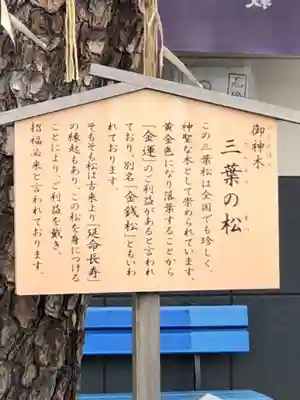 御神木
三葉の松
この三葉松は全国でも珍しく、
神聖な木として崇められています。
黄金色になり落葉することから
「金運」のご利益があると言われ
ており、別名「金銭松」ともいわ
れております。
そもそも松は古来より「延命長寿」
の縁起もあり、この松を身につける
ことにより、ご利益を戴き、
招福必来と言われております。